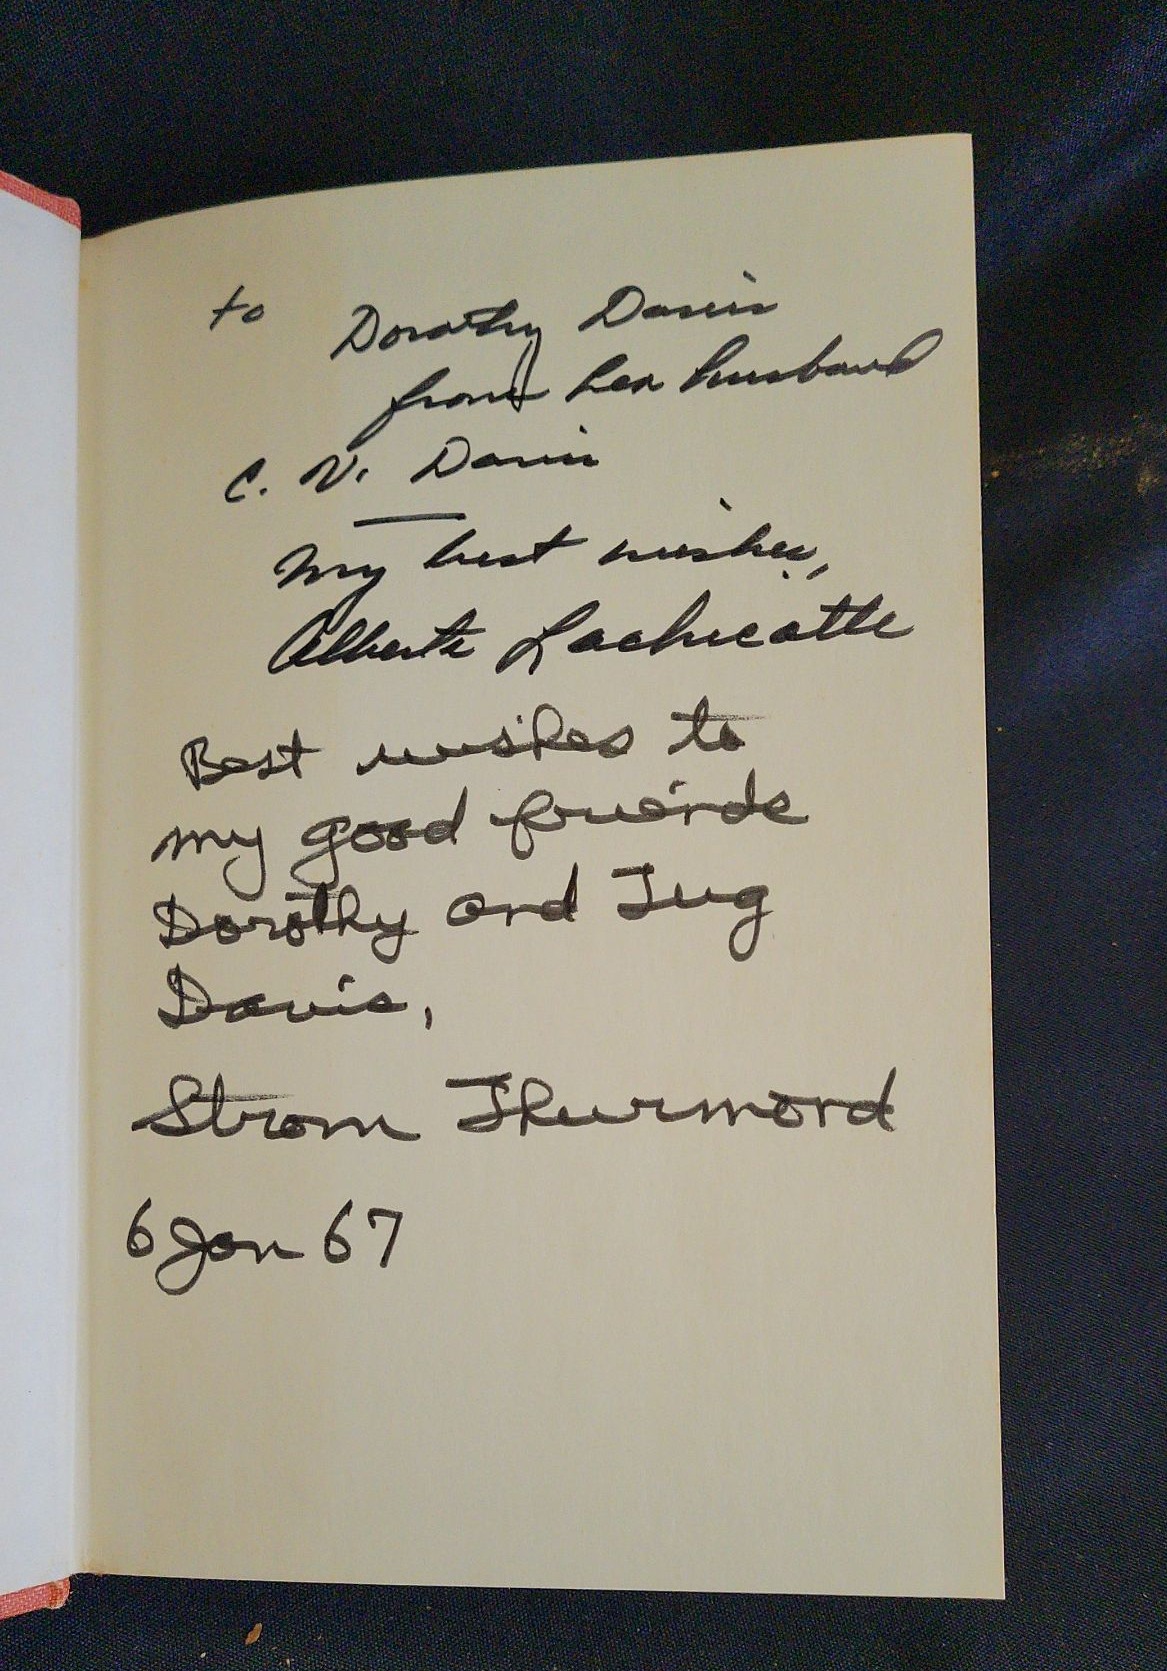 to Dorothy Davis
from her husband
C. V. Davis
My best wishes,
Alberta Lachicotte
Best wishes to
my good friends
Dorothy and Tug
Davis,
Strom Thurmond
6 Jan 67